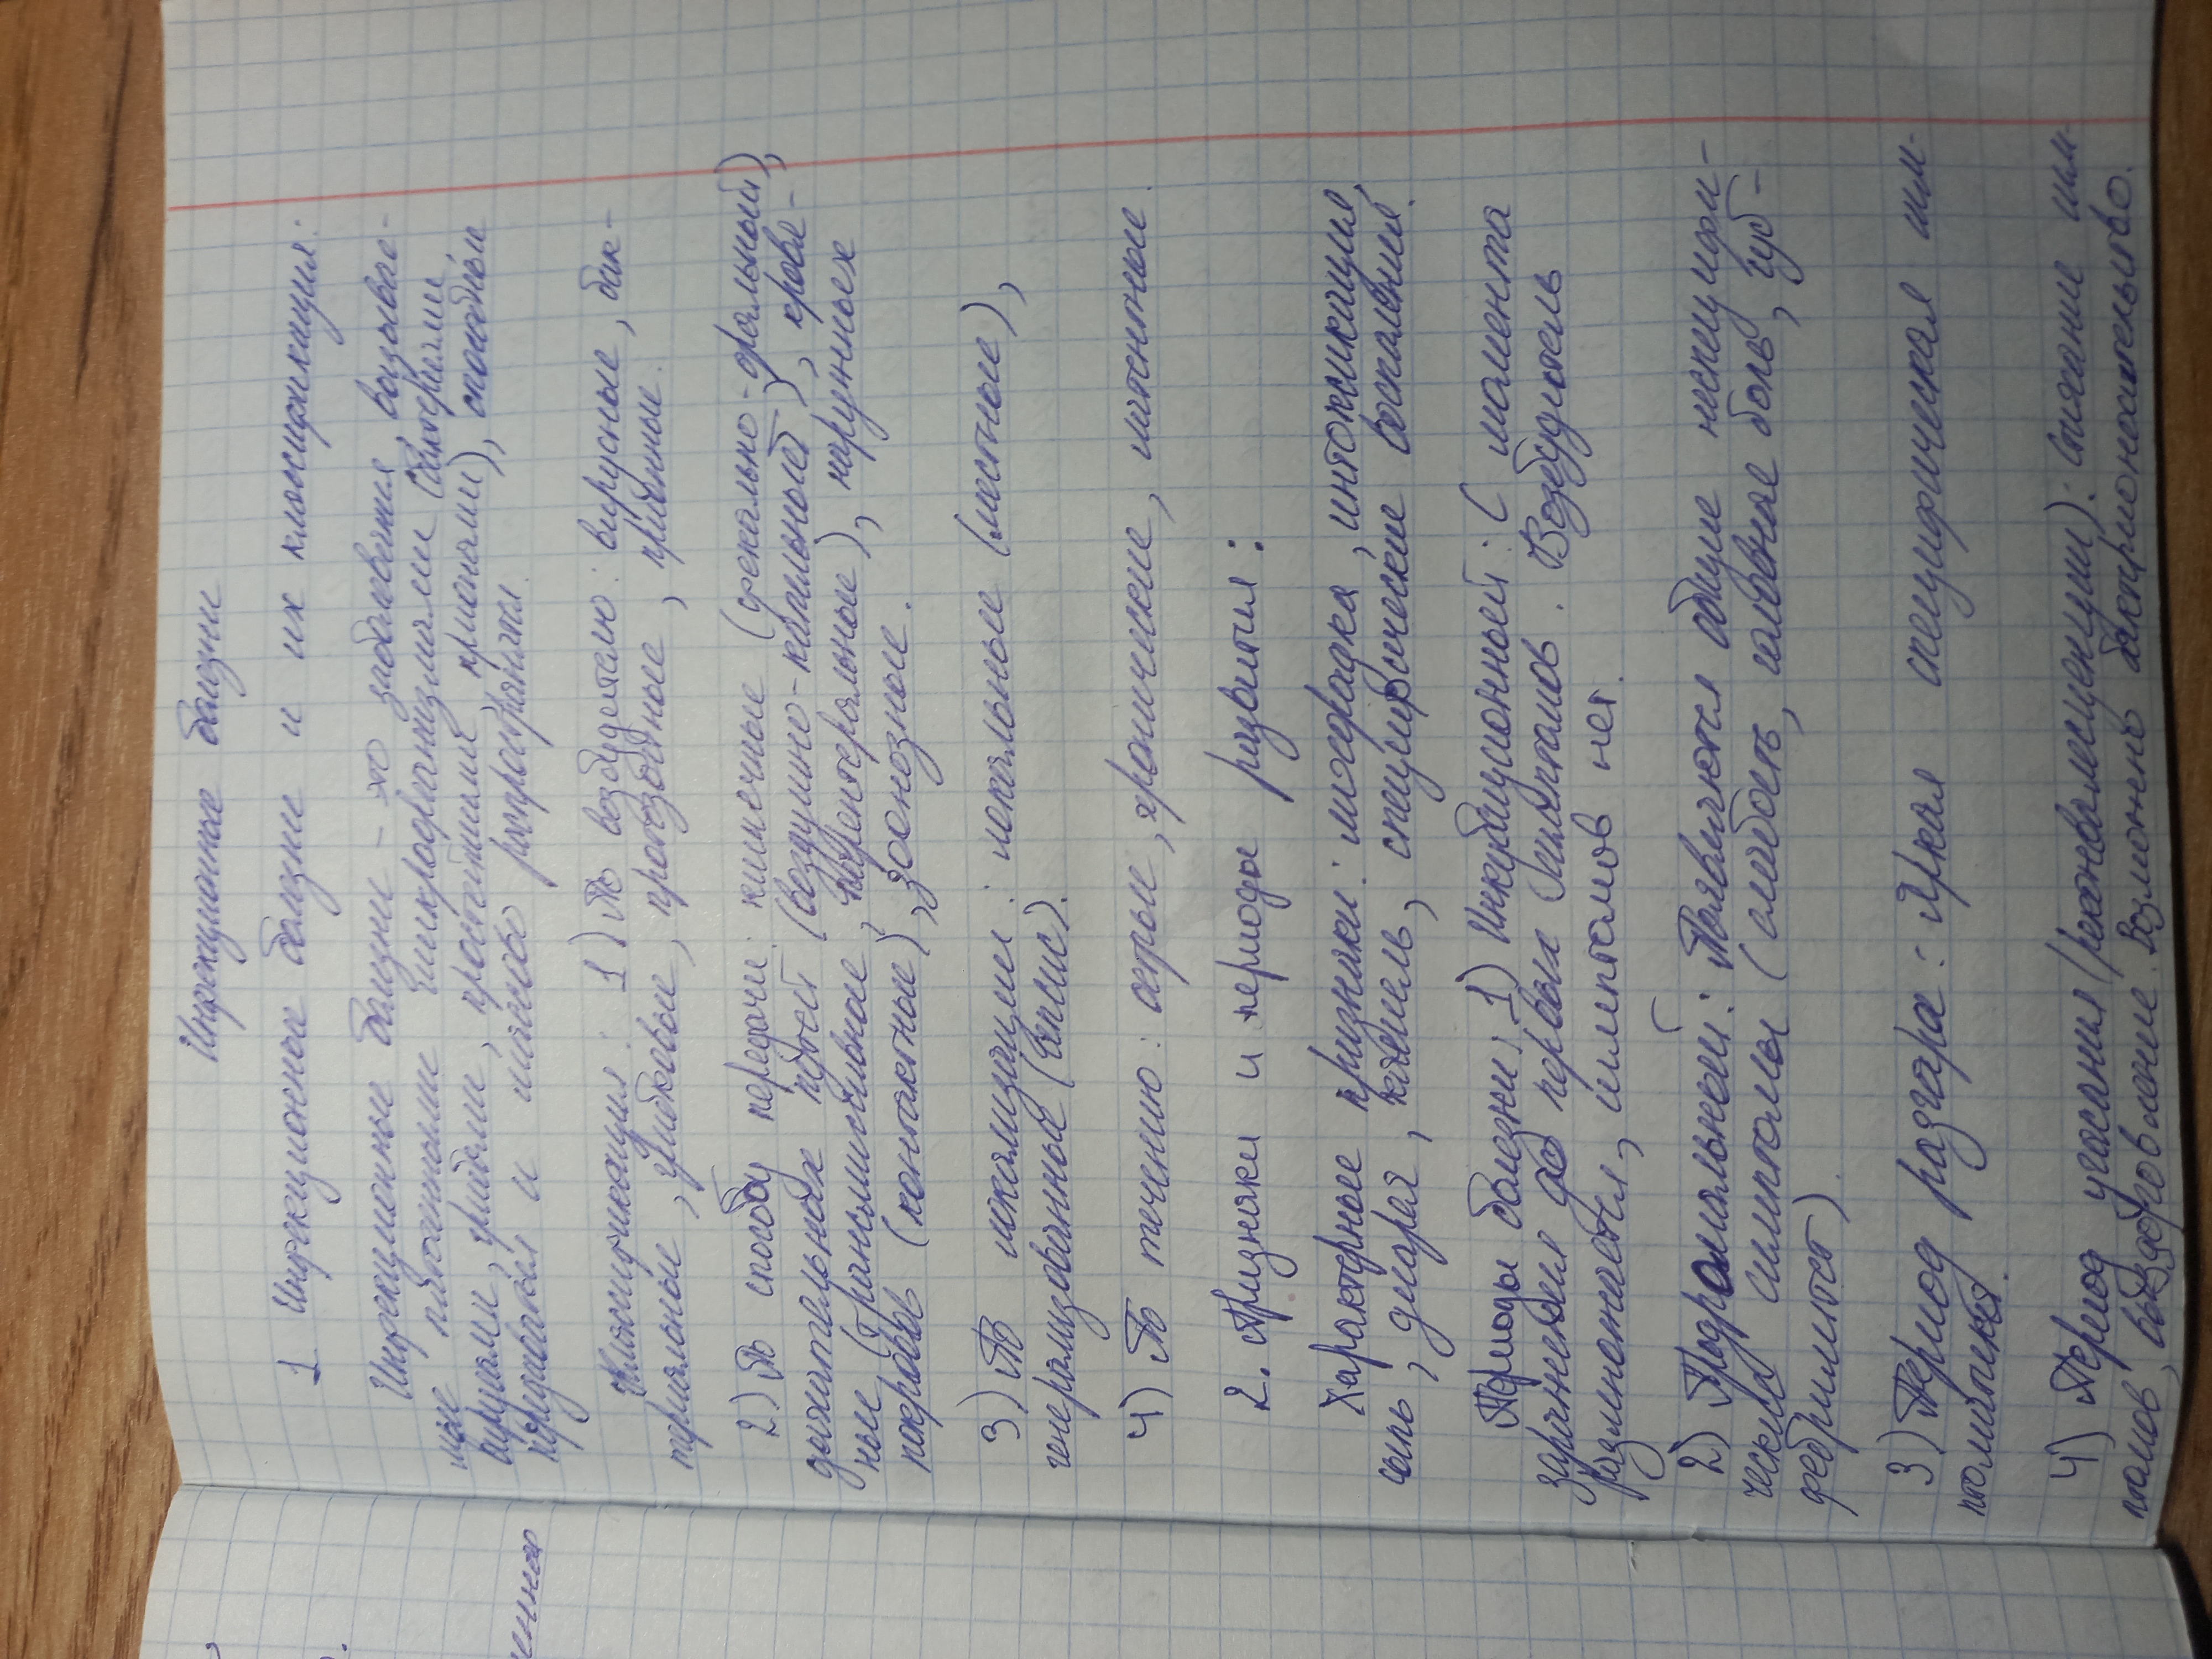 Инфекционные болезни
1 Инфекционные болезни и их классификация:
Инфекционные болезни – это заболевания, вызывае-
мые патогенными микроорганизмами (бактериями,
вирусами, грибами, простейшими, прионами), способные
передаваться и массово распространятся.
Классификация: 1) По возбудителю: вирусные, бак-
териальные, грибковые, протозойные, прионные.
2) По способу передачи: кишечные (фекально-оральный),
дыхательных путей (воздушно-капельный), кровя-
ные (трансмиссивные, парентеральные), наружных
покровов (контактные), зоонозные.
3) По локализации: локальные (местные),
генерализованные (сепсис).
4) По течению: острые, хронические, латентные.
2. Признаки и периоды развития:
Характерные признаки: лихорадка, интоксикация,
сыпь, диарея, кашель, специфические воспаления.
Периоды болезни: 1) Инкубационный: С момента
заражения до первых симптомов. Возбудитель
размножается, симптомов нет.
2) Продромальный: Появляются общие неспецифи-
ческие симптомы (слабость, головная боль, суб-
фебрилитет)
3) Период разгара: Яркая специфическая сим-
птоматика.
4) Период угасания (реконвалесценции): Стихание сим-
птомов, выздоровление. Возможно бактерионосительство.
енно